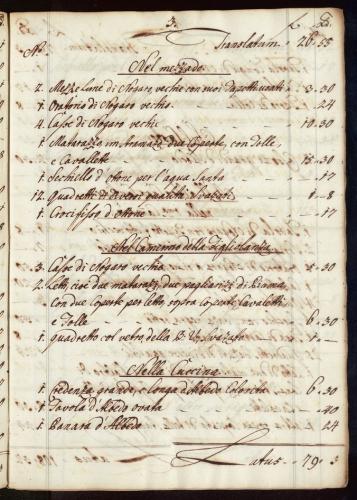 3.
L S
N.º Translatum - 26.55
Nel mezzado
2. Mezze Lune di Nogaro vechie con suoi - 3.30
1. Oratorio di Nogaro vechio - 24
4. Casse di Nogaro vechie - 10.30
1. Matarazzo in due coperte, con Tolle,
e Cavallette - 15.30
1. Sechiello d'ottone per l'aqua Santa - 17
12. Quadretti di diversi - 1-8
1. Crocifisso d'ottone - 17
Nel Camerino della
3. Casse di Nogaro vechie - .30
2. Letti cioe due matarazzi, due pagliarizzi di
con due coperte per letto, sopra coperte, Cavaletti
e Tolle - 6.30
1. quadretto col vetro della B. V. - 1.-
Nella Cuccina
1. Credenza grande, e longa d'Albedo Colorita - 6.30
1. Tavola d'Albedo ovata - .40
1. Panara d'Albedo - 24
Latus - 79.3